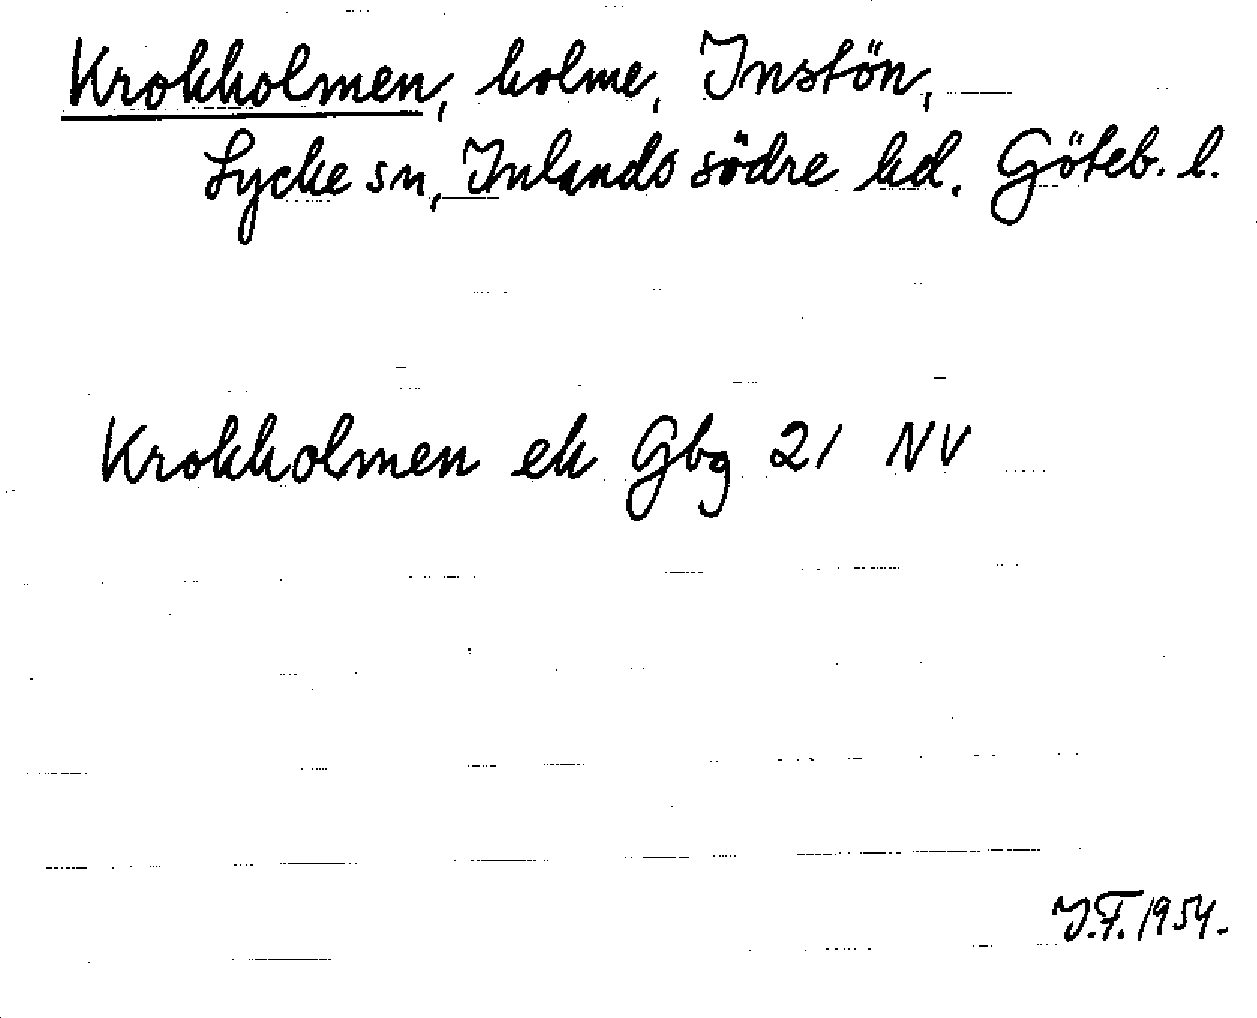 Krokholmen, holme, Instön,
Lycke sn, Inlands södre hd. Göteb. l.
Krokholmen ek Gbg 21 NV
I.F. 1954.